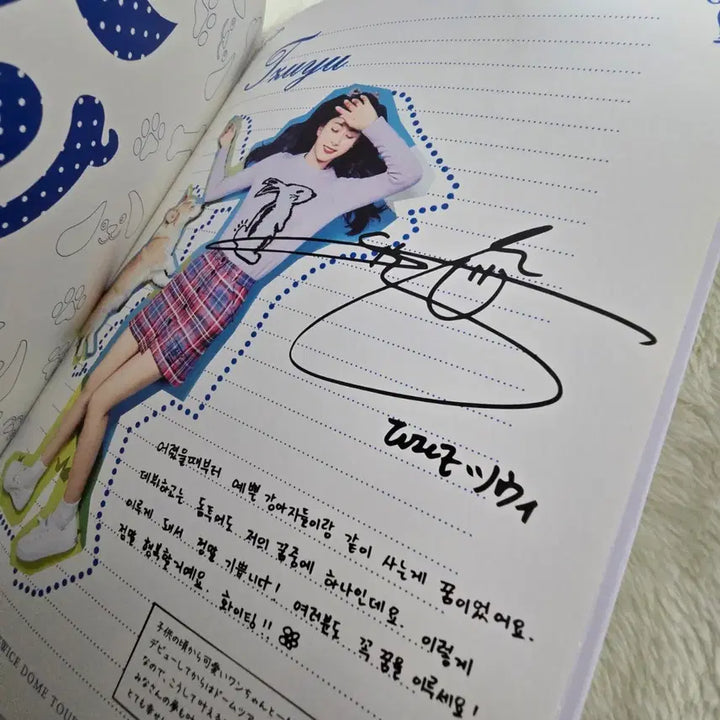 Tzuyu
TWICE 쯔위
어렸을때부터 예쁜 강아지들이랑 같이 사는게 꿈이었어요.
데뷔하고는 돔투어도 저의 꿈중에 하나인데요 이렇게
이루게 돼서 정말 기쁩니다! 여러분도 꼭 꿈을 이루세요!
정말 행복할거예요 화이팅!!
子供の頃から可愛いワンちゃんと一
デビューしてからはドームツア
なので、こうして叶える
みなさんの夢も
とても幸せ
TWICE DOME TOUR